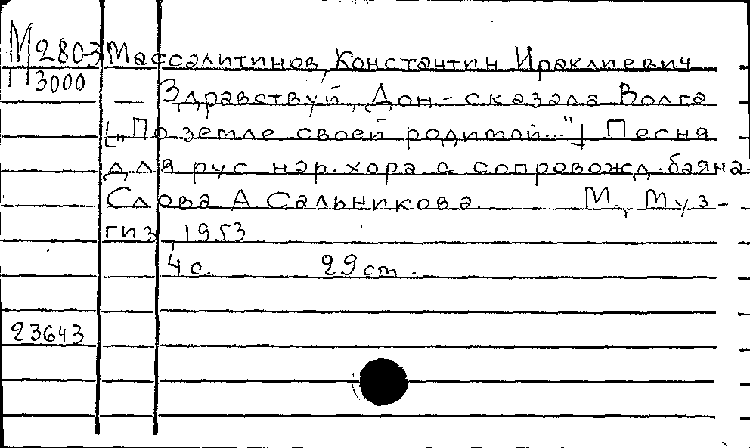 М280-3 Массалитинов, Константин Ираклиевич
П3000 — Здравствуй, Дон - сказала Волга
[„По земле своей родимой..."] Песня
для рус. нар. хора с сопровожд. баяна
Слова А. Сальникова. М., Муз-
гиз, 1953
4 с. 29 cm.
23643